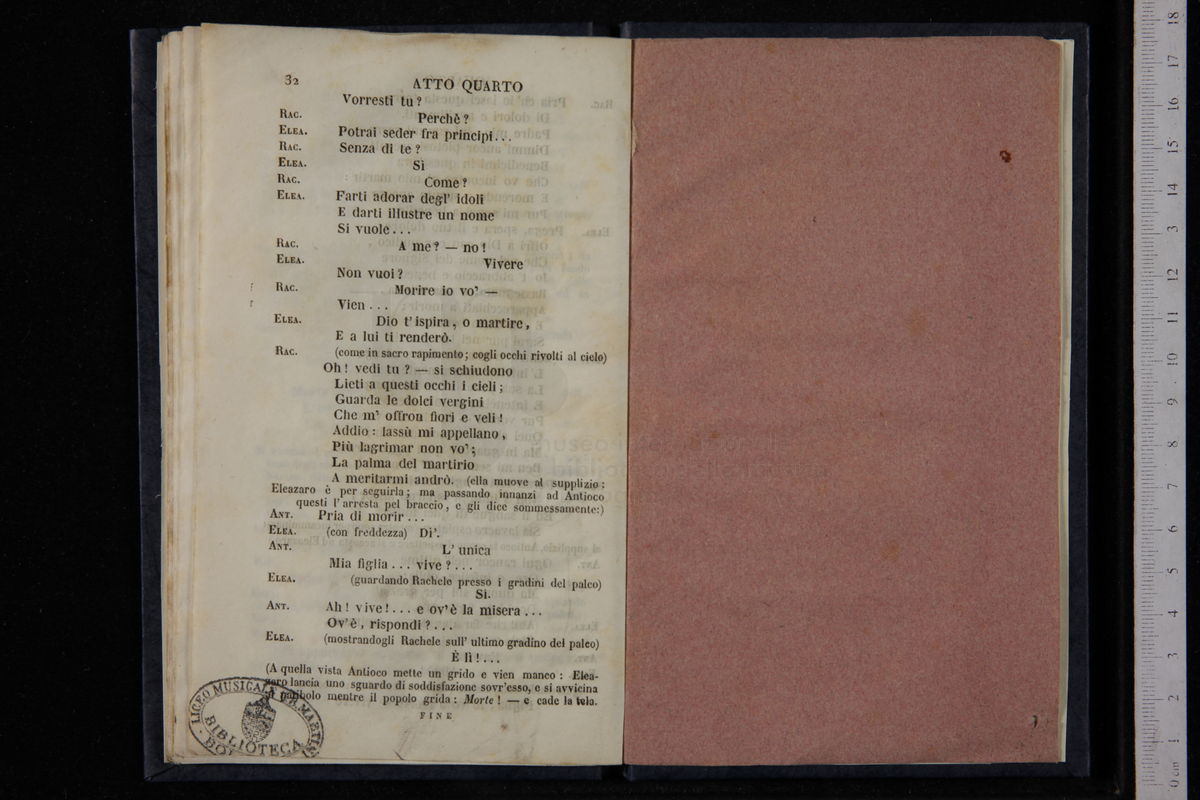 32 ATTO QUARTO
Vorresti tu?
RAC. Perchè?
ELEA. Potrai seder fra principi...
RAC. Senza di te?
ELEA. Sì
RAC. Come?
ELEA. Farti adorar degl' idoli
E darti illustre un nome
Si vuole...
RAC. A me? — no!
ELEA. Vivere
Non vuoi?
RAC. Morire io vo' —
Vien...
ELEA. Dio t' ispira, o martire,
E a lui ti renderò.
RAC. (come in sacro rapimento; cogli occhi rivolti al cielo)
Oh! vedi tu? — si schiudono
Lieti a questi occhi i cieli;
Guarda le dolci vergini
Che m' offron fiori e veli!
Addio: lassù mi appellano,
Più lagrimar non vo';
La palma del martirio
A meritarmi andrò. (ella muove al supplizio:
Eleazaro è per seguirla; ma passando innanzi ad Antioco
questi l' arresta pel braccio, e gli dice sommessamente:)
ANT. Pria di morir...
ELEA. (con freddezza) Di'.
ANT. L' unica
Mia figlia... vive?...
ELEA. (guardando Rachele presso i gradini del palco)
Sì.
ANT. Ah! vive!... e ov'è la misera...
Ov'è, rispondi?...
ELEA. (mostrandogli Rachele sull' ultimo gradino del palco)
È lì!...
(A quella vista Antioco mette un grido e vien manco: Elea-
zaro lancia uno sguardo di soddisfazione sovr'esso, e si avvicina
al patibolo mentre il popolo grida: Morte! — e cade la tela.
FINE
LICEO MUSICALE
BIBLIOTECA